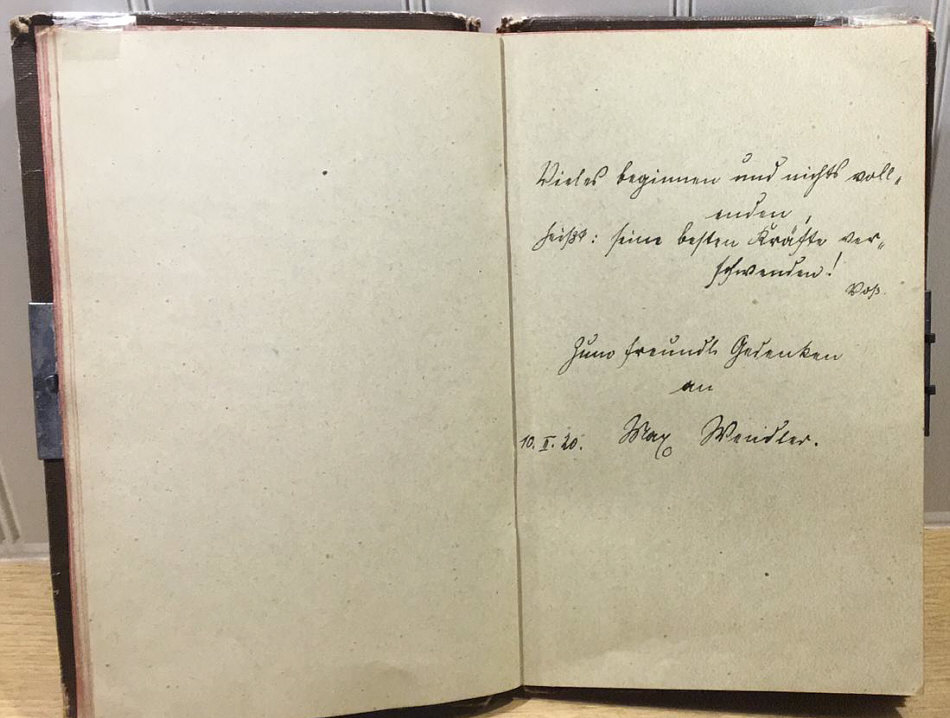 Vieles beginnen und nichts voll-
enden,
heißt: seine besten Kräfte ver-
schwenden!
Voß.
Zum freundl. Gedenken
an
10. II. 20. Max Wendler.